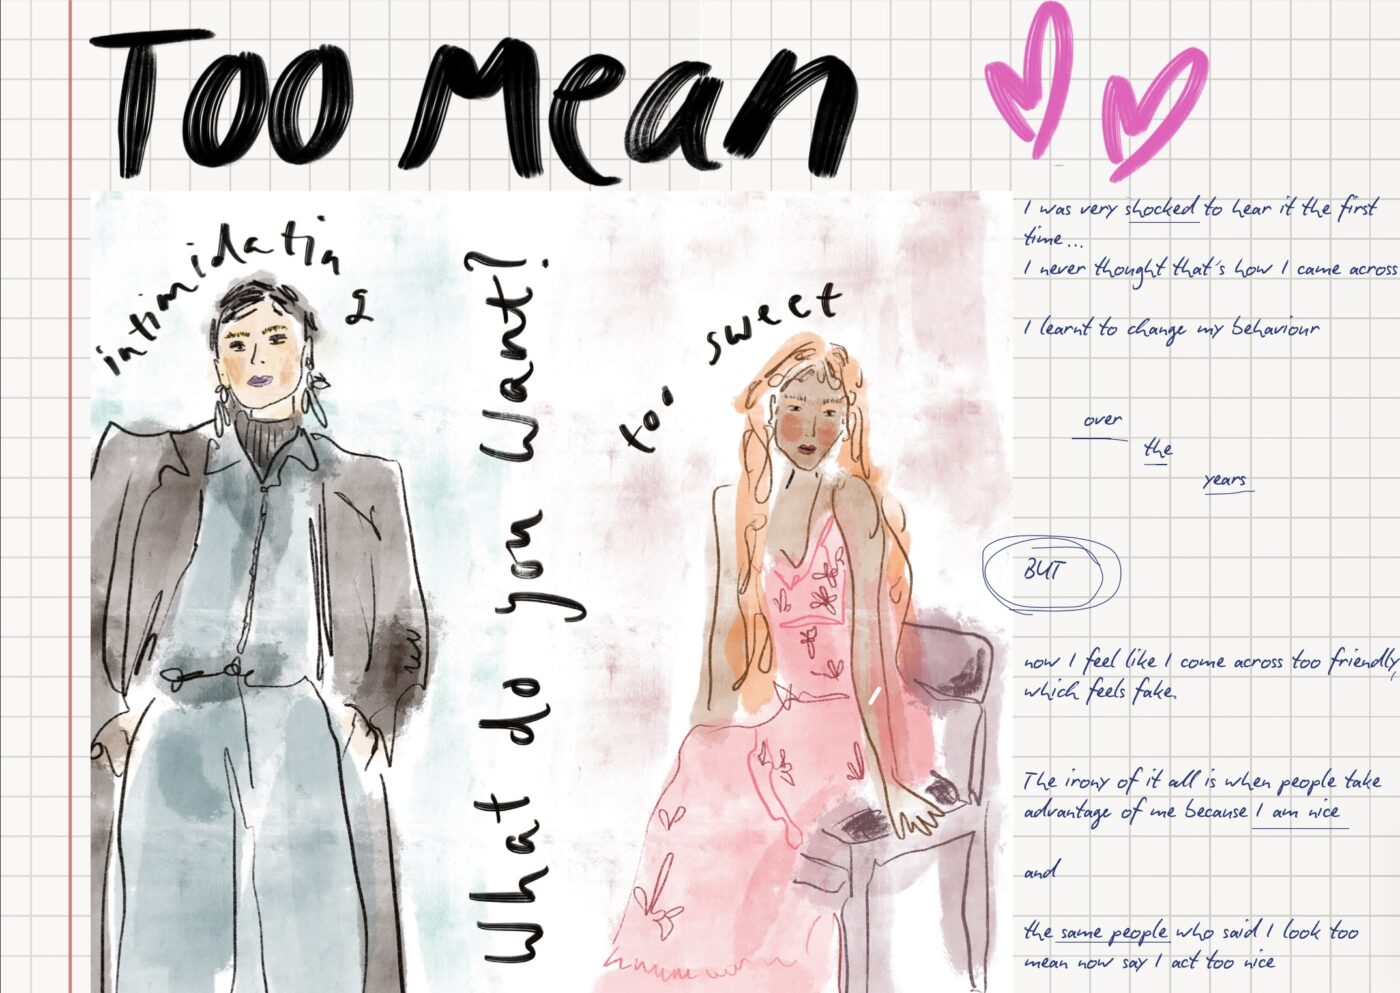 Too Mean
intimidating
What do you Want?
too sweet
I was very shocked to hear it the first
time...
I never thought that's how I came across
I learnt to change my behaviour
over
the
years
BUT
now I feel like I come across too friendly,
which feels fake.
The irony of it all is when people take
advantage of me because I am nice
and
the same people who said I look too
mean now say I act too nice